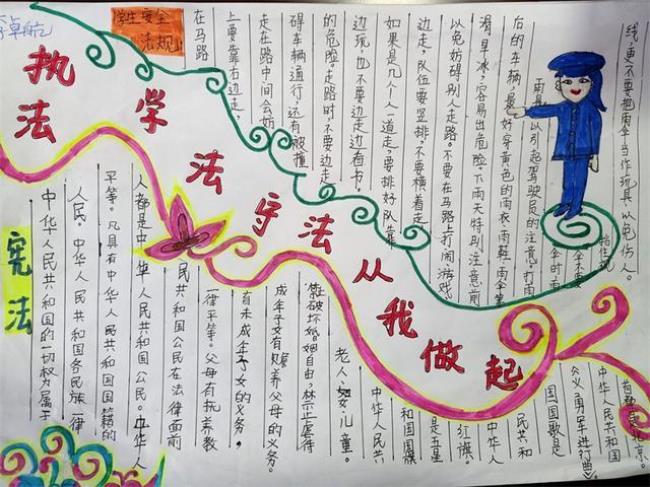 卓航
学生安全
法规
执法
学法守法从我做起
在马路
上要靠右边走,
走在路中间会妨
碍车辆通行,还有被撞
的危险。走路时,不要边走
边玩,也不要边走边看书。
如果是几个人一道走,要排好队靠
边走,队伍要竖排,不要横着走
以免妨碍别人走路。不要在马路上打闹游戏
滑旱冰,容易出危险。下雨天特别注意前
后的车辆,最好穿黄色的雨衣,雨鞋,雨伞等
雨具,以引起驾驶员的注意,打雨
伞时,雨
伞不要
挡住视
线,更不要把雨伞当作玩具以免伤人。
宪法
中华人民共和国的一切权力属于
人民。中华人民共和国各民族一律
平等。凡具有中华人民共和国国籍的
人都是中华人民共和国公民。中华人
民共和国公民在法律面前
一律平等。父母有抚养教
育未成年子女的义务。
成年子女有赡养父母的义务。
禁止破坏婚姻自由,禁止虐待
老人,婴儿童。
中华人民共
和国国旗
是五星
红旗。
中华人
民共和
国国歌是
义勇军进行曲。
中华人民共和国
首都是北京。